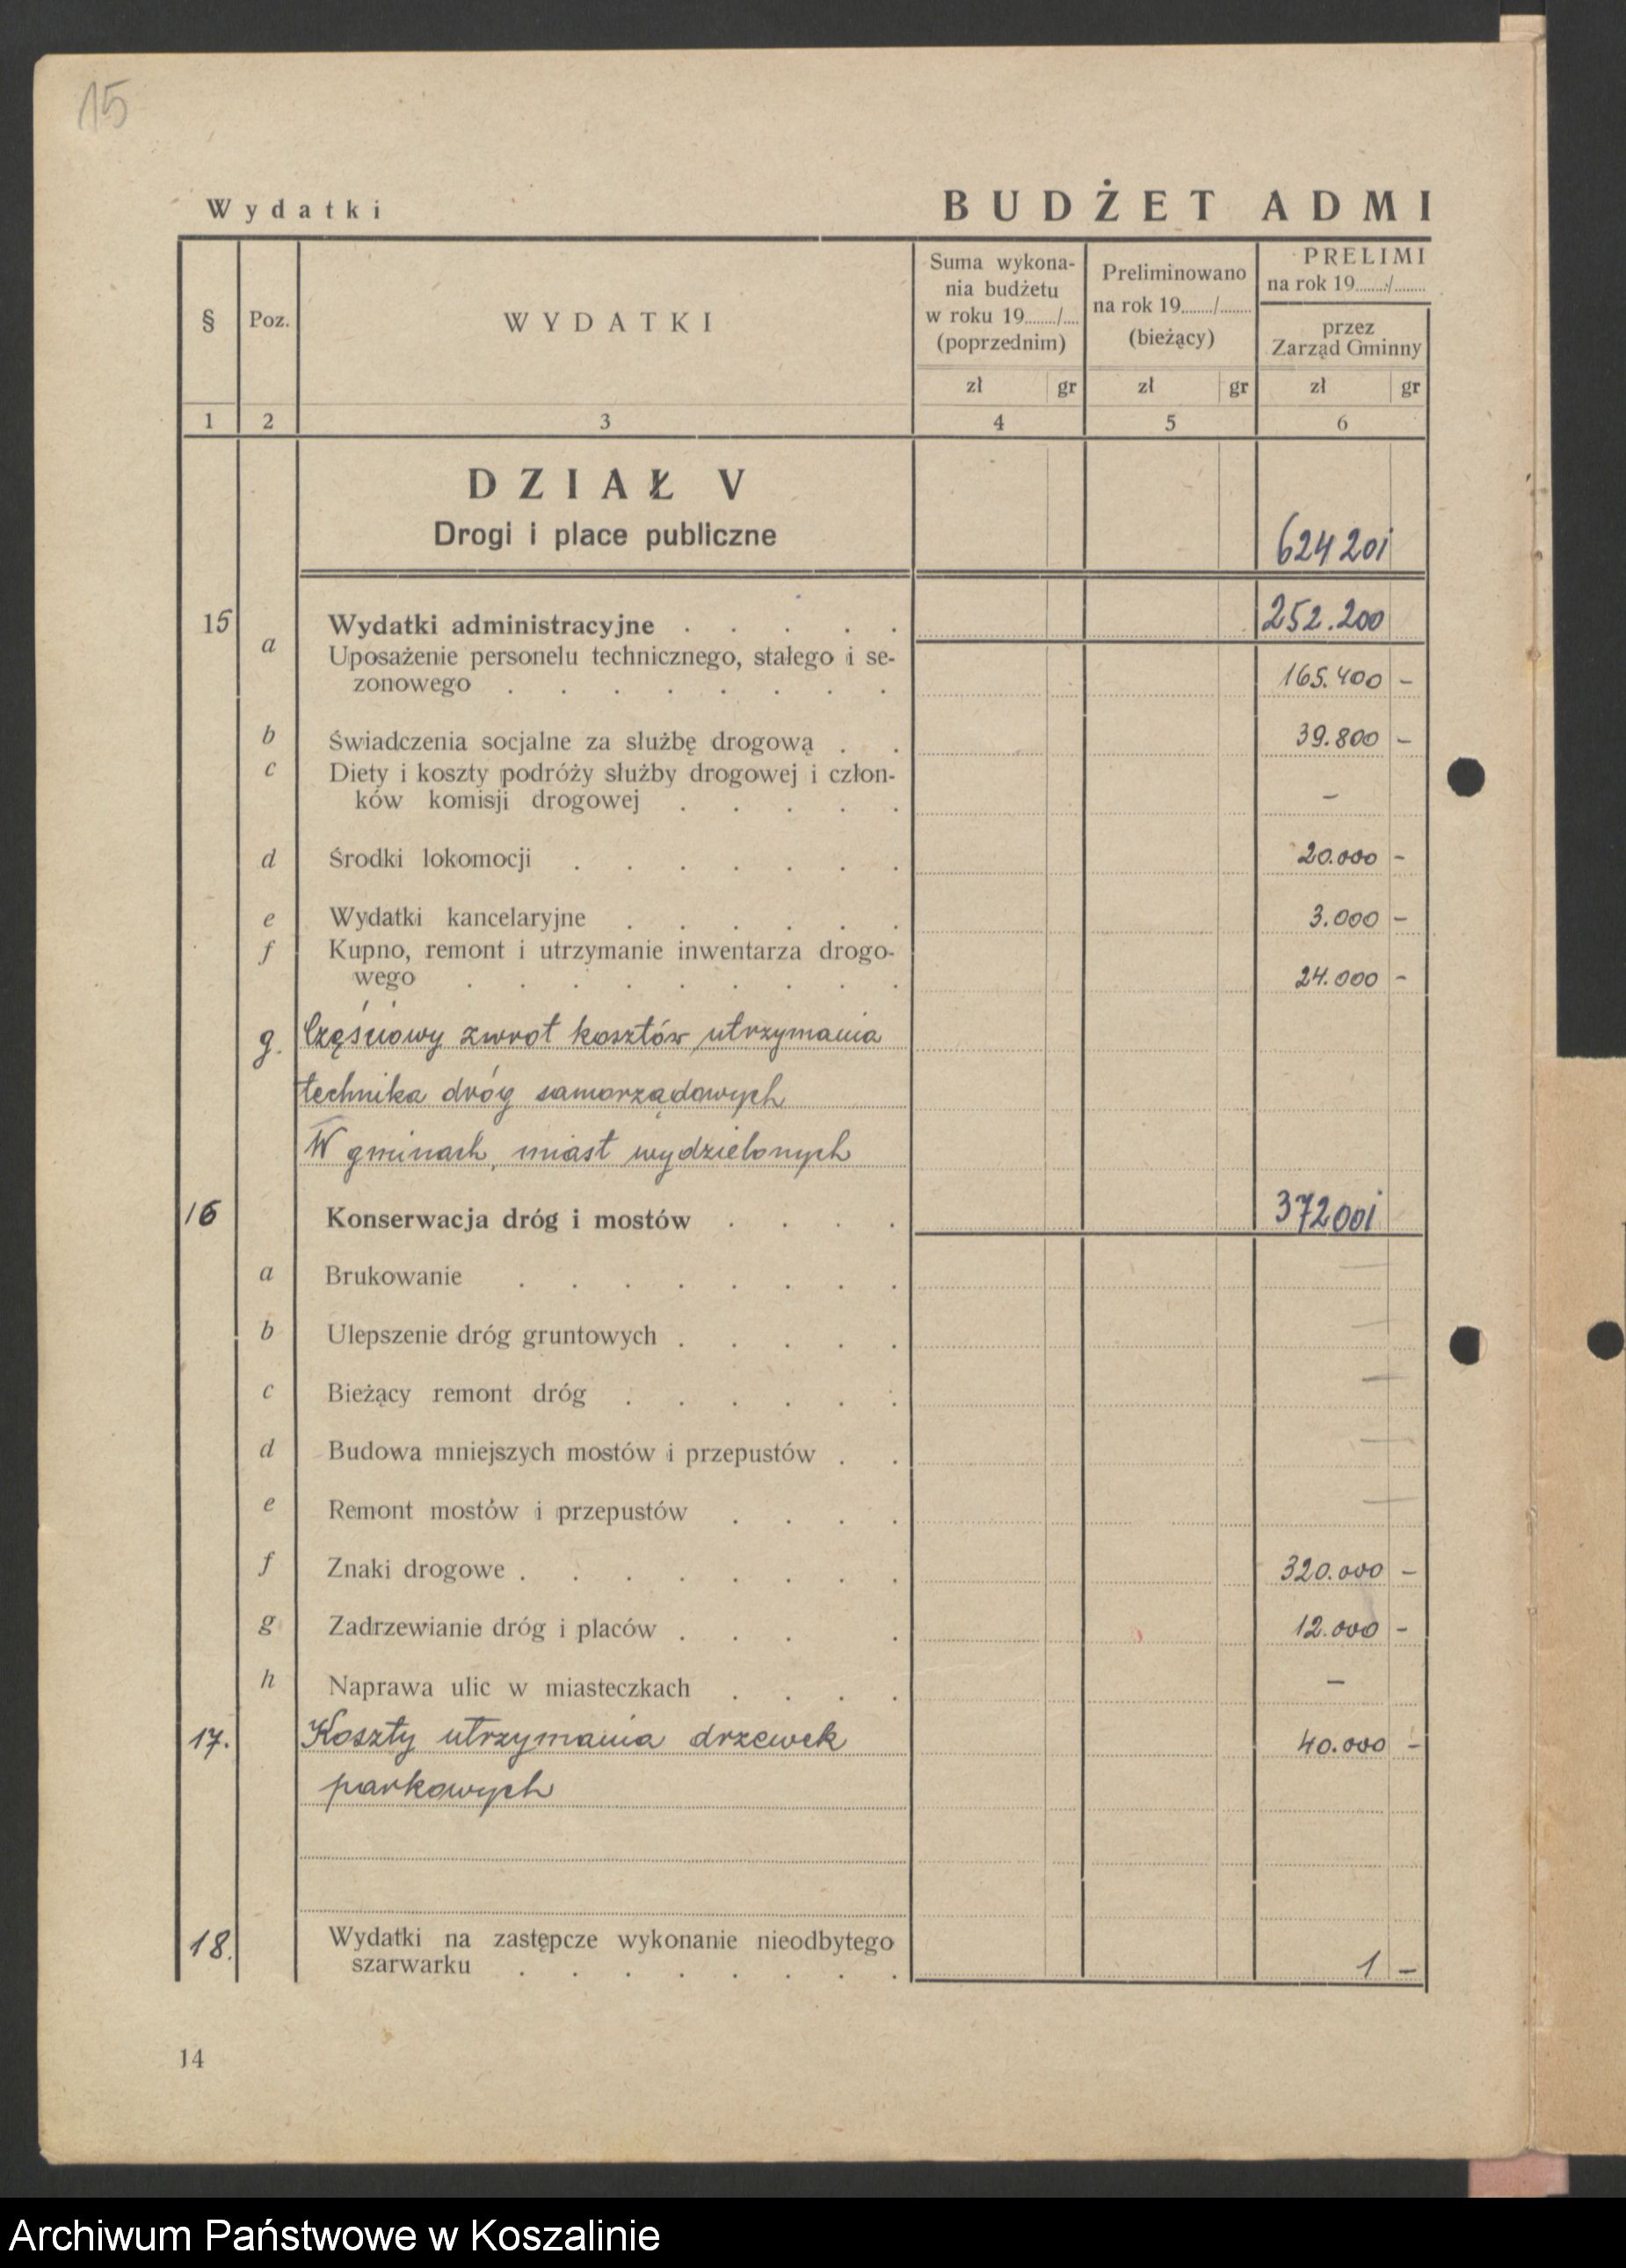 15
Wydatki
BUDŻET ADMI
§
Poz.
WYDATKI
Suma wykona-
nia budżetu
w roku 19......./....
(poprzednim)
Preliminowano
na rok 19......./.......
(bieżący)
PRELIMI
na rok 19......./.......
przez
Zarząd Gminny
zł gr zł gr zł gr
1 2 3 4 5 6
DZIAŁ V
Drogi i place publiczne
624 201
15 Wydatki administracyjne . . . . . 252.200
a Uposażenie personelu technicznego, stałego i se-
zonowego . . . . . . . . 165.400 –
b Świadczenia socjalne za służbę drogową . . 39.800 –
c Diety i koszty podróży służby drogowej i człon-
ków komisji drogowej . . . . . –
d Środki lokomocji . . . . . . . 20.000 –
e Wydatki kancelaryjne . . . . . . 3.000 –
f Kupno, remont i utrzymanie inwentarza drogo-
wego . . . . . . . . . 24.000 –
g. Częściowy zwrot kosztów utrzymania
technika dróg samorządowych
W gminach, miast wydzielonych
16 Konserwacja dróg i mostów . . . . 372001
a Brukowanie . . . . . . . . —
b Ulepszenie dróg gruntowych . . . . . —
c Bieżący remont dróg . . . . . . —
d Budowa mniejszych mostów i przepustów . . —
e Remont mostów i przepustów . . . . —
f Znaki drogowe . . . . . . . . 320.000 –
g Zadrzewianie dróg i placów . . . . 12.000 –
h Naprawa ulic w miasteczkach . . . . –
17. Koszty utrzymania drzewek 40.000 –
parkowych
18. Wydatki na zastępcze wykonanie nieodbytego
szarwarku . . . . . . . . 1 –
14
Archiwum Państwowe w Koszalinie